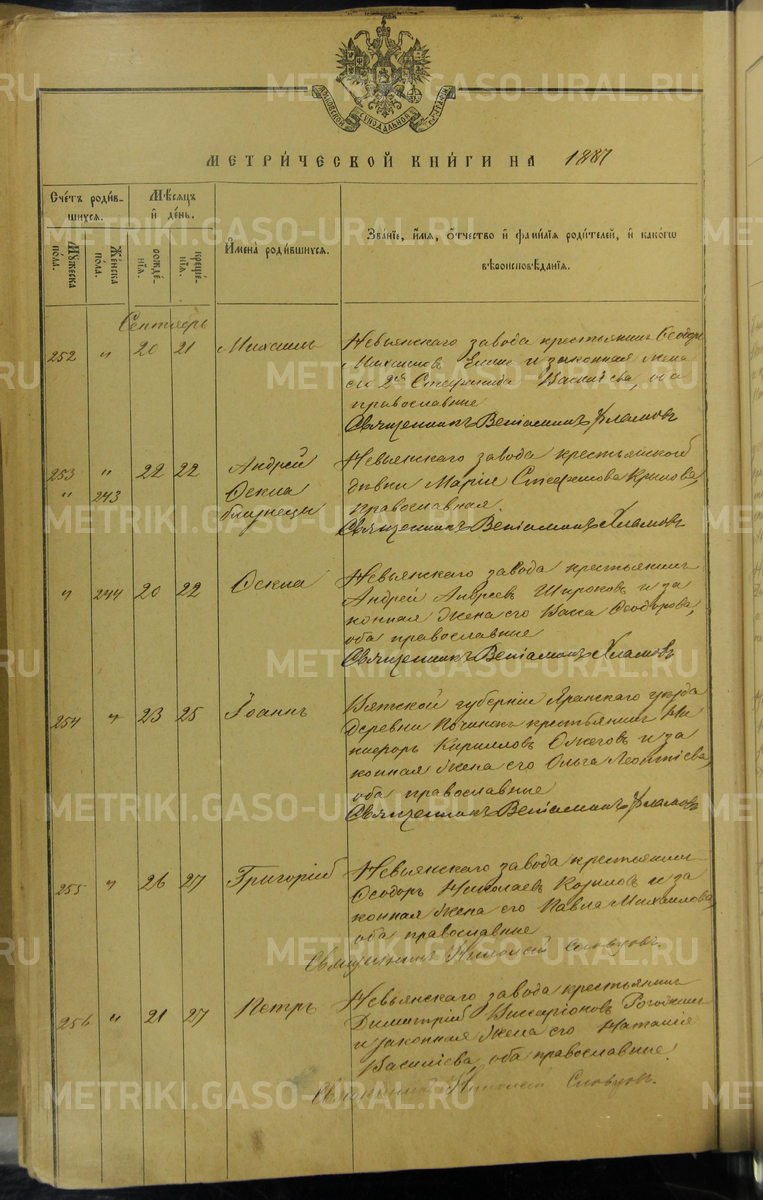 МЕТРИ́ЧЕСКОЙ КНИ́ГИ НА 1887
Счетъ роди́в-
шихся.
Мѣсяцъ
и҆ де́нь.
И҆мена̀ роди́вшихся.
Зва́нїе, и҆́мя, ѻ҆́тчество и҆ фами́лїя роди́телей, и҆ како́гѡ
вѣроисповѣ́данїя.
Мꙋ́жеска
по́ла.
Же́нска
по́ла.
рожде́-
нїя.
креще́-
нїя.
Сентябрь
252 " 20 21 Михаилъ Невьянскаго завода крестьянинъ Ѳеодоръ
Михаиловъ и законная жена
его 2го Васильева, оба
православные
Священникъ Веніаминъ Хламовъ
253 " 22 22 Андрей Невьянскаго завода крестьянской
" 243 Ѳекла дѣвки Маріи Крылова,
близнецы православная.
Священникъ Веніаминъ Хламовъ
" 244 20 22 Ѳекла Невьянскаго завода крестьянинъ
Андрей Андреевъ Широковъ и за
конная жена его Васса Ѳеодорова,
оба православные
Священникъ Веніаминъ Хламовъ
254 " 23 25 Іоаннъ Вятской губерніи Яранскаго уѣзда
деревни Починокъ крестьянинъ
Кирилловъ Ожеговъ и за
конная жена его Ольга Леонтіева,
оба православные
Священникъ Веніаминъ Хламовъ
255 " 26 27 Григорій Невьянскаго завода крестьянинъ
Ѳеодоръ Николаевъ и за
конная жена его Павла Михаилова,
оба православные
Священникъ Николай Словцовъ.
256 " 21 27 Петръ Невьянскаго завода крестьянинъ
Димитрій Виссаріоновъ
и законная жена его Наталія
Василіева, оба православные.
Священникъ Николай Словцовъ.
METRIKI.GASO-URAL.RU